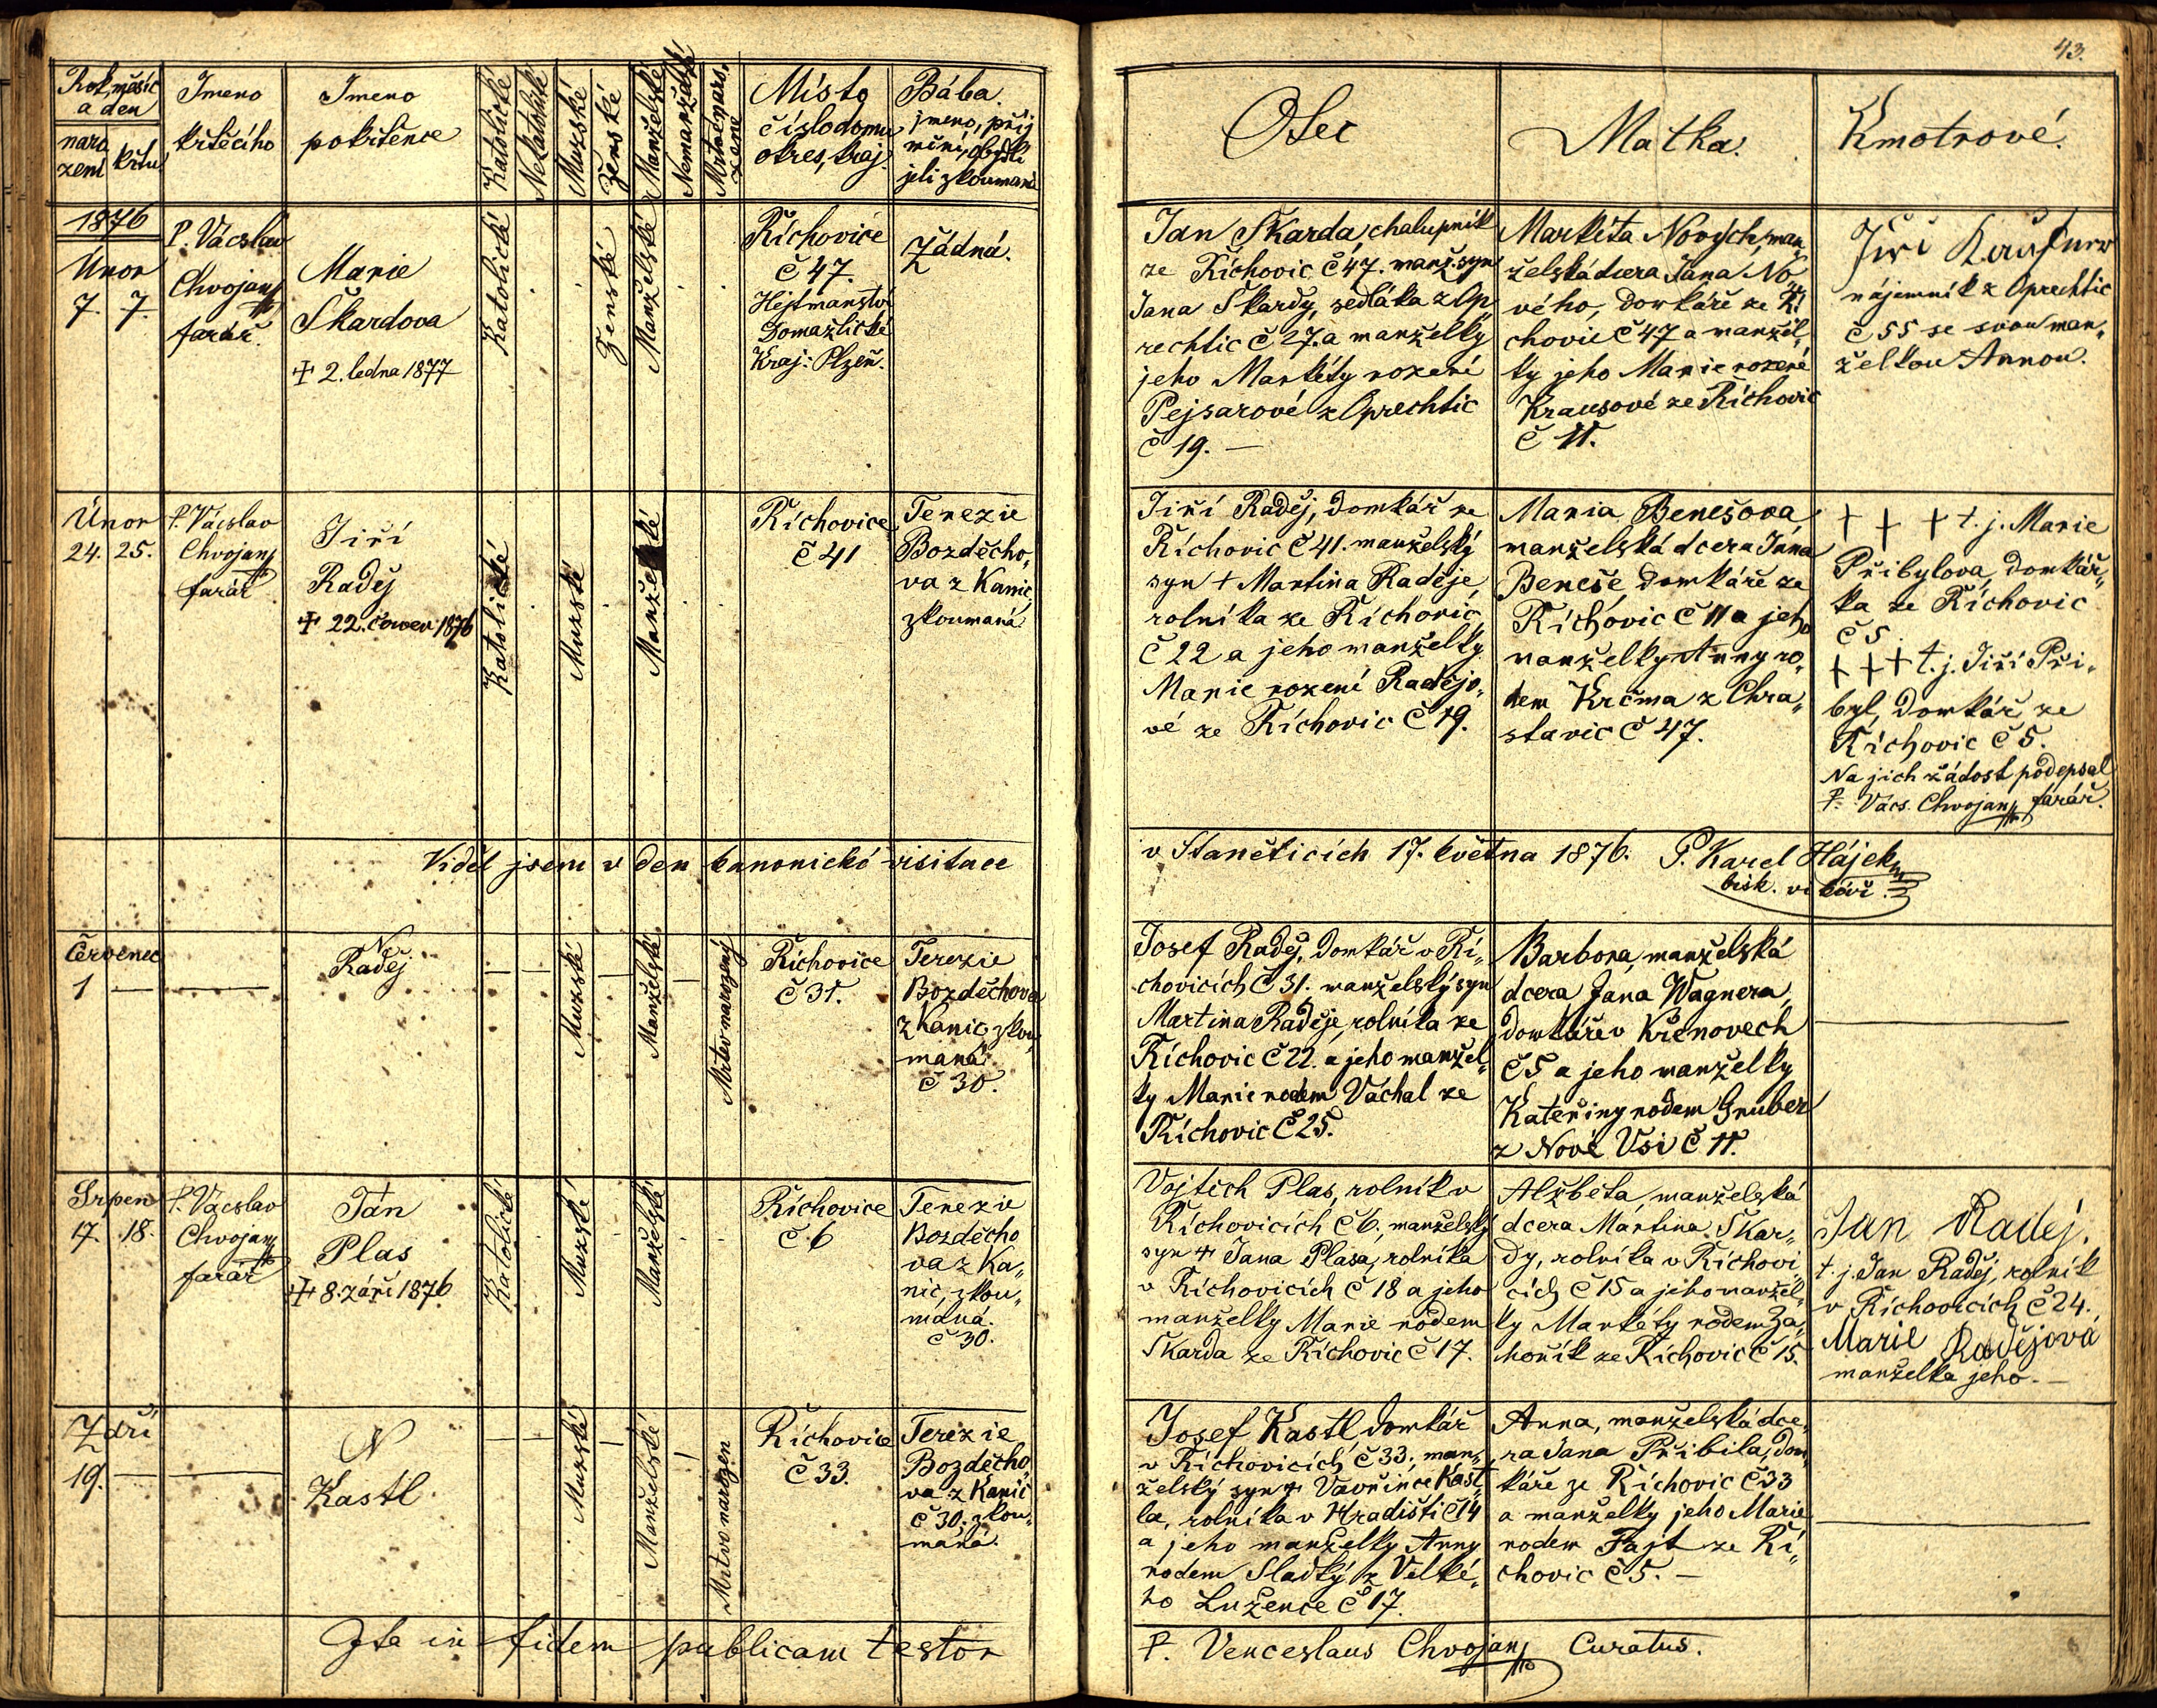 43.
Rok, měsíc
a den
naro
zení
křtu
Jmeno
křtěcího
Jmeno
pokřtěnce
Katolické
Nekatolické
Mužské
Ženské
Manželské
Nemanželské
Mrtvě naro-
zené
Místo
číslo domu
okres, kraj.
Bába.
jmeno, příj
mění, obydlí
jeli zkoumaná
Otec
Matka.
Kmotrové.
1876
Únor
7. 7.
P. Vácslav
Chvojan
farář.
Marie
Škardova
+ 2. ledna 1877
Katolické
Ženské
Manželské
Říchovice
č 47.
Hejtmanství
Domažlické
Kraj: Plzeň.
Žádná.
Jan Škarda, chalupník
ze Říchovic č 47. manž. syn
Jana Škardy, sedláka z Op„
rechtic č 27. a manželky
jeho Markéty rozené
Pejsarové z Oprechtic
č 19. —
Markéta Nových, man„
želská dcera Jana No„
vého, domkáře ze Ří
chovic č 47 a manžel„
ky jeho Marie rozené
Krausové ze Říchovic
č 11.
Jiří
nájemník z Oprechtic
č 55 se svou man„
želkou Annou.
Únor
24. 25.
P. Vácslav
Chvojan
farář
Jiří
Raděj
+ 22. červen 1876
Katolické
Mužské
Manželské
Říchovice
č 41
Terezie
Bozděcho„
va z Kanic
zkoumaná
Jiří Raděj, domkář ze
Říchovic č 41. manželský
syn + Martina Raděje,
rolníka ze Říchovic
č 22 a jeho manželky
Marie rozené Radějo„
vé ze Říchovic č 19.
Maria Benešova,
manželská dcera Jana
Beneše, domkáře ze
Říchovic č 11 a jeho
manželky Anny ro„
dem Krčma z Chra„
stavic č 47.
+ + + t. j. Marie
Přibylova, domkář„
ka ze Říchovic
č 5
+ + + t. j. Jiří Při„
byl, domkář ze
Říchovic č 5.
Na jich žádost podepsal
P. Vács. Chvojan farář.
Viděl jsem v den kanonické visitace
v Staněticích 17. května 1876. P. Karel Hájek
bisk. vikář.
Červenec
1 —
N
Raděj
Mužské
Manželské
Mrtvě narozený
Říchovice
č 31.
Terezie
Bozděchova
z Kanic, zkou„
maná
č 30.
Josef Raděj, domkář v Ří„
chovicích č 31. manželský syn
Martina Raděje, rolníka ze
Říchovic č 22. a jeho manžel„
ky Marie rodem Váchal ze
Říchovic č 25.
Barbora, manželská
dcera Jana Wagnera,
domkáře v Křenovech
č 5 a jeho manželky
Kateřiny rodem Gruber
z Nové Vsi č 11.
Srpen
17. 18.
P. Vácslav
Chvojan
farář
Ján
Plas
+ 8. září 1876
Katolické
Mužské
Manželské
Říchovice
č. 6
Terezie
Bozděcho
va z Ka„
nic, zkou„
máná.
č 30.
Vojtěch Plas, rolník v
Říchovicích č 6., manželský
syn + Jana Plasa, rolníka
v Říchovicích č 18 a jeho
manželky Marie rodem
Škarda ze Říchovic č 17.
Alžběta, manželská
dcera Martina Škar„
dy, rolníka v Říchovi„
cích č 15 a jeho manžel„
ky Markéty rodem Za„
hořík ze Říchovic č 15.
Jan Raděj.
t. j. Jan Raděj, rolník
v Říchovicích č 24.
Marie Radějová
manželka jeho. —
Září
19. —
N
Kastl
Mužské
Manželské
Mrtvo narozen
Říchovice
č 33.
Terezie
Bozděcho„
va z Kanic
č 30. zkou„
máná.
Josef Kastl domkář
v Říchovicích č 33., man„
želský syn + Vavřince Kast„
la, rolníka v Hradišti č 14
a jeho manželky Anny
rodem Sladký z Velké„
ho Lužence č 17.
Anna, manželská dce„
ra Jana Přibila, dom„
káře ze Říchovic č 33
a manželky jeho Marie
rodem Fajt ze Ří„
chovic č 5. —
Ita in fidem publicam testor
P. Venceslaus Chvojan Curatus.